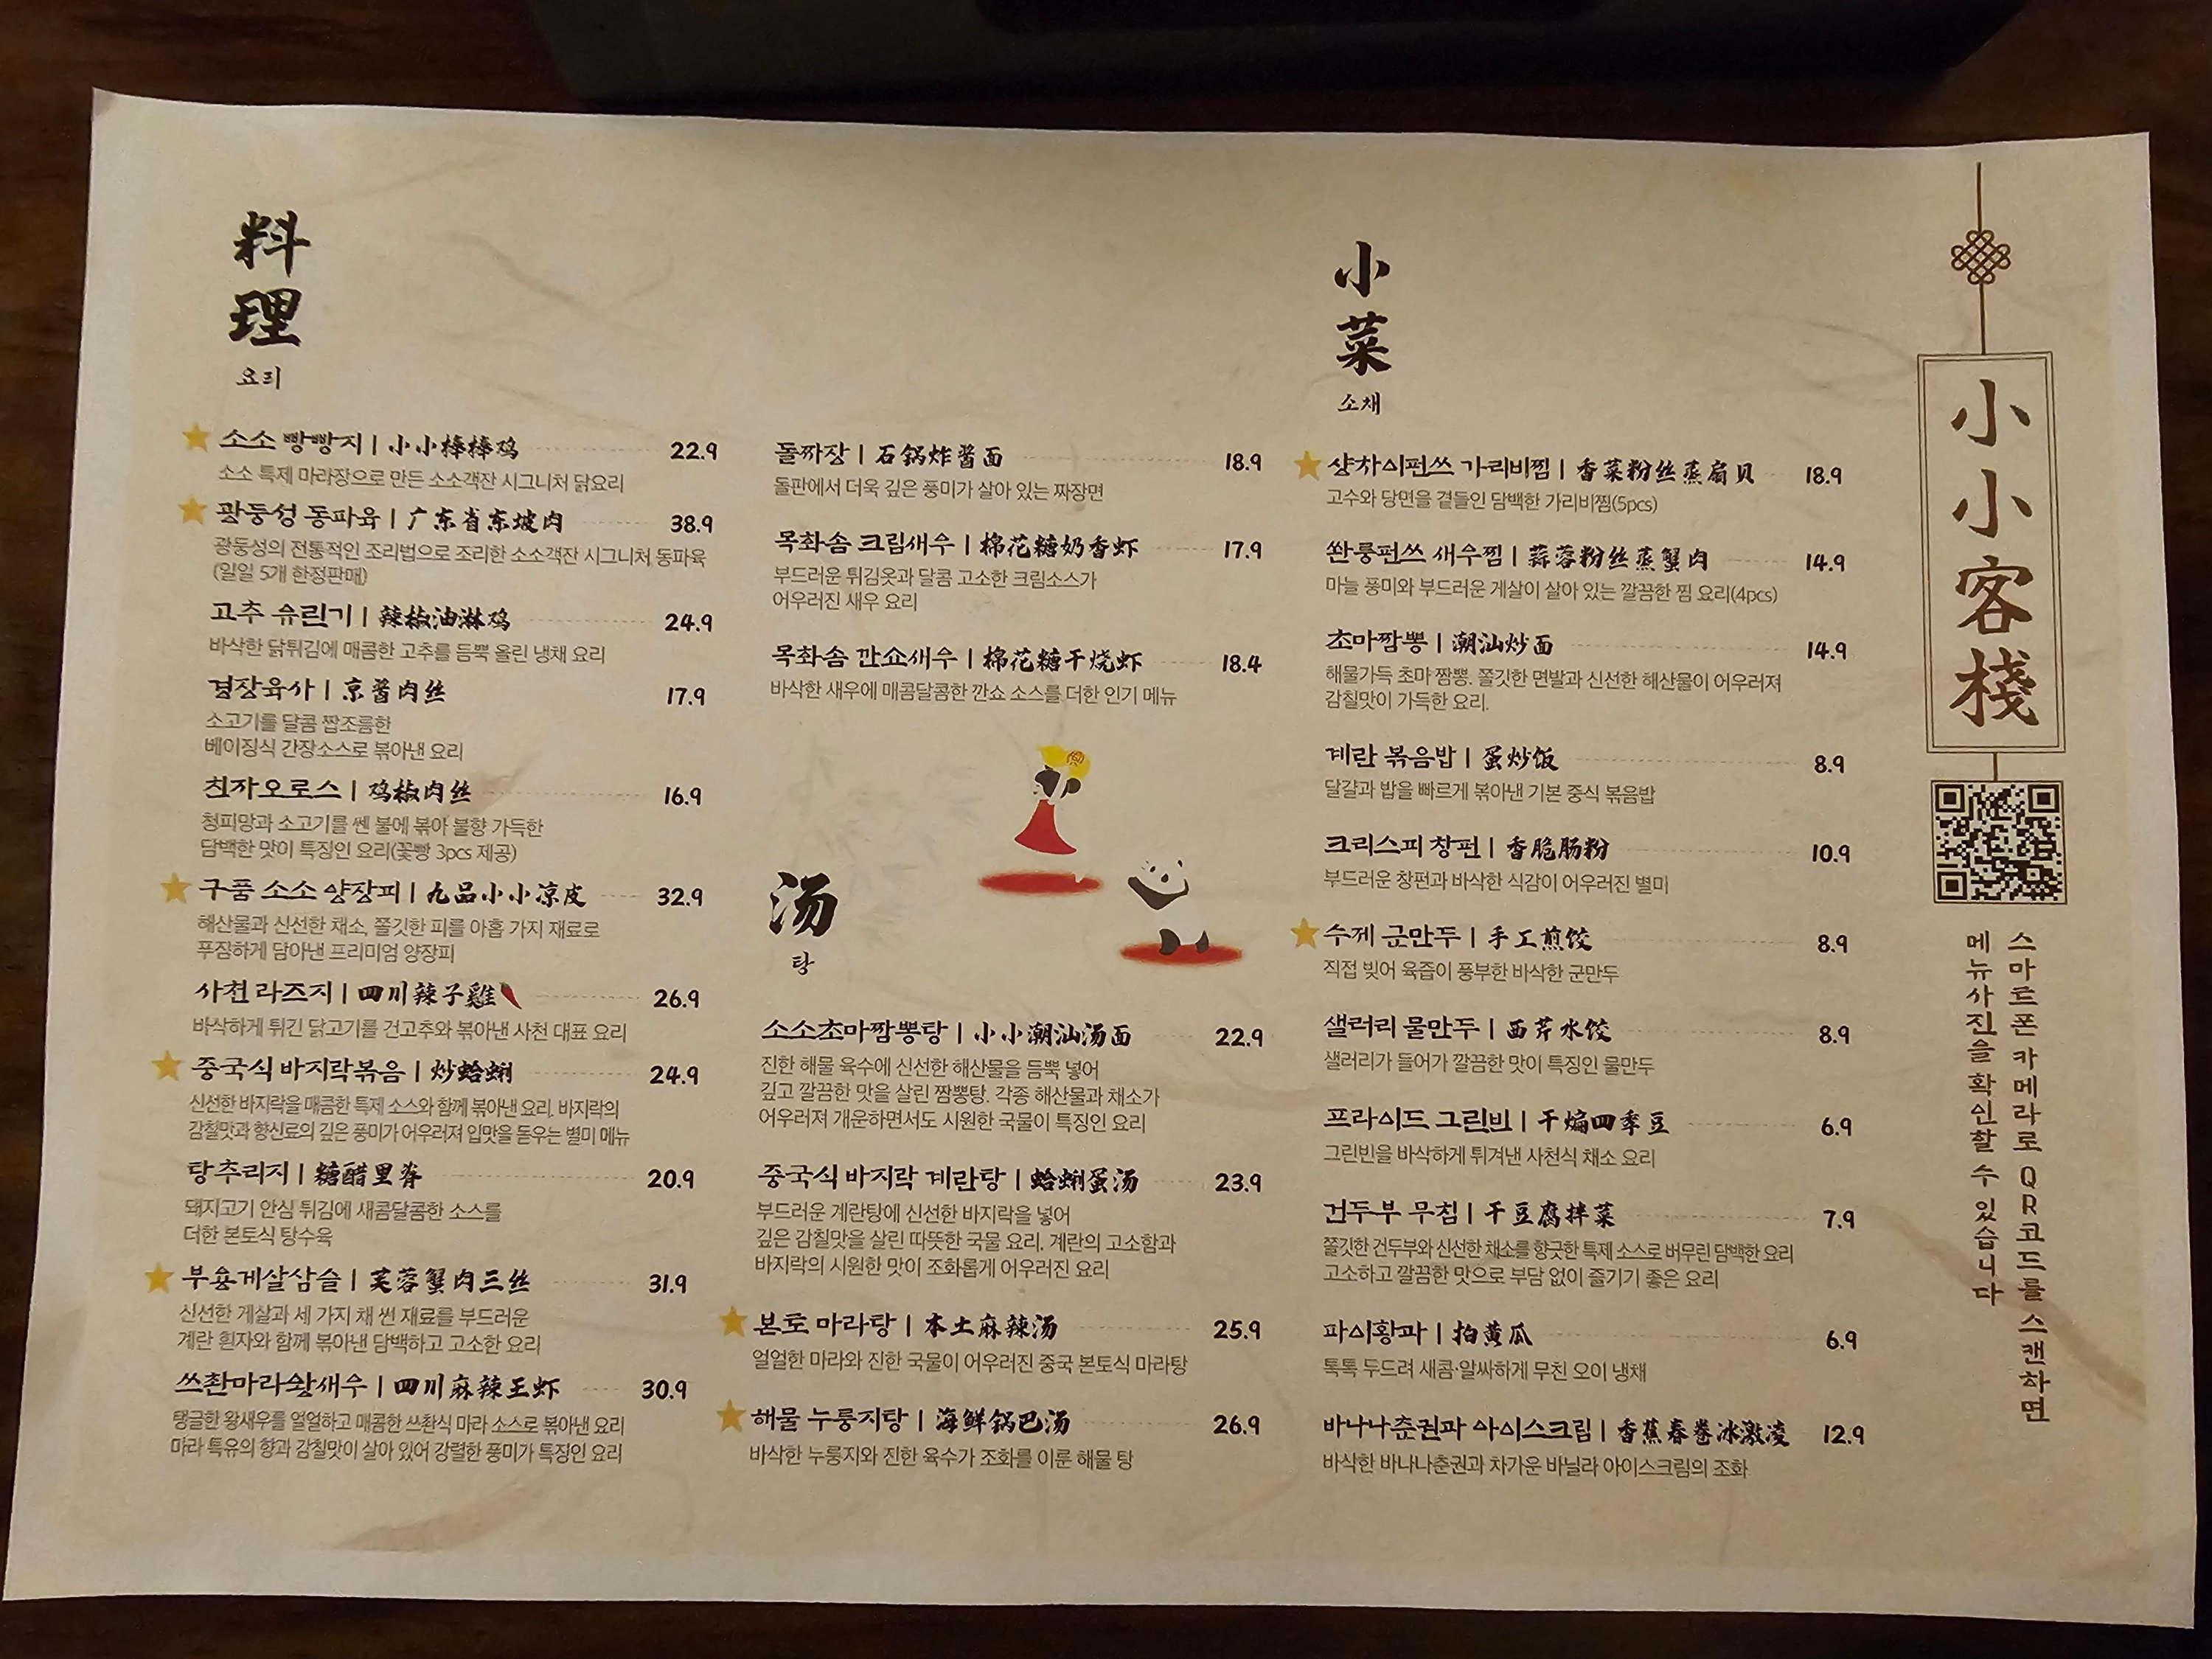 料
理
요리
소소 빵빵지 | 小小棒棒鸡 22.9
소소 특제 마라장으로 만든 소소객잔 시그니처 닭요리
광둥성 동파육 | 广东省东坡肉 38.9
광둥성의 전통적인 조리법으로 조리한 소소객잔 시그니처 동파육
(일일 5개 한정판매)
고추 유린기 | 辣椒油淋鸡 24.9
바삭한 닭튀김에 매콤한 고추를 듬뿍 올린 냉채 요리
경장육사 | 京酱肉丝 17.9
소고기를 달콤 짭조름한
베이징식 간장소스로 볶아낸 요리
친쟈오로스 | 鸡椒肉丝 16.9
청피망과 소고기를 쎈 불에 볶아 불향 가득한
담백한 맛이 특징인 요리(꽃빵 3pcs 제공)
구품 소소 양장피 | 九品小小凉皮 32.9
해산물과 신선한 채소, 쫄깃한 피를 아홉 가지 재료로
푸짐하게 담아낸 프리미엄 양장피
사천 라즈지 | 四川辣子雞 26.9
바삭하게 튀긴 닭고기를 건고추와 볶아낸 사천 대표 요리
중국식 바지락볶음 | 炒蛤蜊 24.9
신선한 바지락을 매콤한 특제 소스와 함께 볶아낸 요리. 바지락의
감칠맛과 향신료의 깊은 풍미가 어우러져 입맛을 돋우는 별미 메뉴
탕추리지 | 糖醋里脊 20.9
돼지고기 안심 튀김에 새콤달콤한 소스를
더한 본토식 탕수육
부용게살삼슬 | 芙蓉蟹肉三丝 31.9
신선한 게살과 세 가지 채 썬 재료를 부드러운
계란 흰자와 함께 볶아낸 담백하고 고소한 요리
쓰촨마라왕새우 | 四川麻辣王虾 30.9
탱글한 왕새우를 얼얼하고 매콤한 쓰촨식 마라 소스로 볶아낸 요리
마라 특유의 향과 감칠맛이 살아 있어 강렬한 풍미가 특징인 요리
돌짜장 | 石锅炸酱面 18.9
돌판에서 더욱 깊은 풍미가 살아 있는 짜장면
목화솜 크림새우 | 棉花糖奶香虾 17.9
부드러운 튀김옷과 달콤 고소한 크림소스가
어우러진 새우 요리
목화솜 깐쇼새우 | 棉花糖干烧虾 18.4
바삭한 새우에 매콤달콤한 깐쇼 소스를 더한 인기 메뉴
汤
탕
소소초마짬뽕탕 | 小小潮汕汤面 22.9
진한 해물 육수에 신선한 해산물을 듬뿍 넣어
깊고 깔끔한 맛을 살린 짬뽕탕. 각종 해산물과 채소가
어우러져 개운하면서도 시원한 국물이 특징인 요리
중국식 바지락 계란탕 | 蛤蜊蛋汤 23.9
부드러운 계란탕에 신선한 바지락을 넣어
깊은 감칠맛을 살린 따뜻한 국물 요리. 계란의 고소함과
바지락의 시원한 맛이 조화롭게 어우러진 요리
본토 마라탕 | 本土麻辣汤 25.9
얼얼한 마라와 진한 국물이 어우러진 중국 본토식 마라탕
해물 누룽지탕 | 海鲜锅巴汤 26.9
바삭한 누룽지와 진한 육수가 조화를 이룬 해물 탕
小
菜
소채
샹차이펀쓰 가리비찜 | 香菜粉丝蒸扇贝 18.9
고수와 당면을 곁들인 담백한 가리비찜(5pcs)
쏸룽펀쓰 새우찜 | 蒜蓉粉丝蒸蟹肉 14.9
마늘 풍미와 부드러운 게살이 살아 있는 깔끔한 찜 요리(4pcs)
초마짬뽕 | 潮汕炒面 14.9
해물가득 초마 짬뽕. 쫄깃한 면발과 신선한 해산물이 어우러져
감칠맛이 가득한 요리.
계란 볶음밥 | 蛋炒饭 8.9
달걀과 밥을 빠르게 볶아낸 기본 중식 볶음밥
크리스피 창펀 | 香脆肠粉 10.9
부드러운 창펀과 바삭한 식감이 어우러진 별미
수제 군만두 | 手工煎饺 8.9
직접 빚어 육즙이 풍부한 바삭한 군만두
샐러리 물만두 | 西芹水饺 8.9
샐러리가 들어가 깔끔한 맛이 특징인 물만두
프라이드 그린빈 | 干煸四季豆 6.9
그린빈을 바삭하게 튀겨낸 사천식 채소 요리
건두부 무침 | 干豆腐拌菜 7.9
쫄깃한 건두부와 신선한 채소를 향긋한 특제 소스로 버무린 담백한 요리
고소하고 깔끔한 맛으로 부담 없이 즐기기 좋은 요리
파이황과 | 拍黄瓜 6.9
톡톡 두드려 새콤·알싸하게 무친 오이 냉채
바나나춘권과 아이스크림 | 香蕉春卷冰激凌 12.9
바삭한 바나나춘권과 차가운 바닐라 아이스크림의 조화
小小客栈
스마트폰 카메라로 QR코드를 스캔하면
메뉴사진을 확인할 수 있습니다